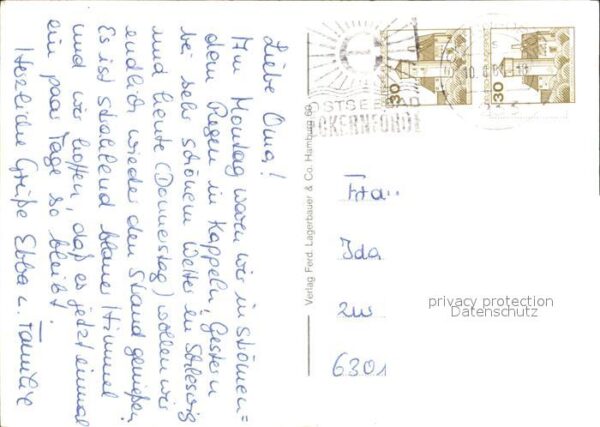 Liebe Oma!
Am Montag waren wir in strömen=
dem Regen in Kappeln, Gestern
bei sehr schönem Wetter in Schleswig
und heute (Donnerstag) wollen wir
endlich wieder den Strand genießen.
Es ist strahlend blauer Himmel
und wir hoffen, daß es jetzt einmal
ein paar Tage so bleibt!
Herzliche Grüße Ebba u. Familie
Verlag Ferd. Lagerbauer & Co. Hamburg 60
OSTSEEBAD
ECKERNFÖRDE
30
30
Frau
Ida
zur
6301
privacy protection
Datenschutz